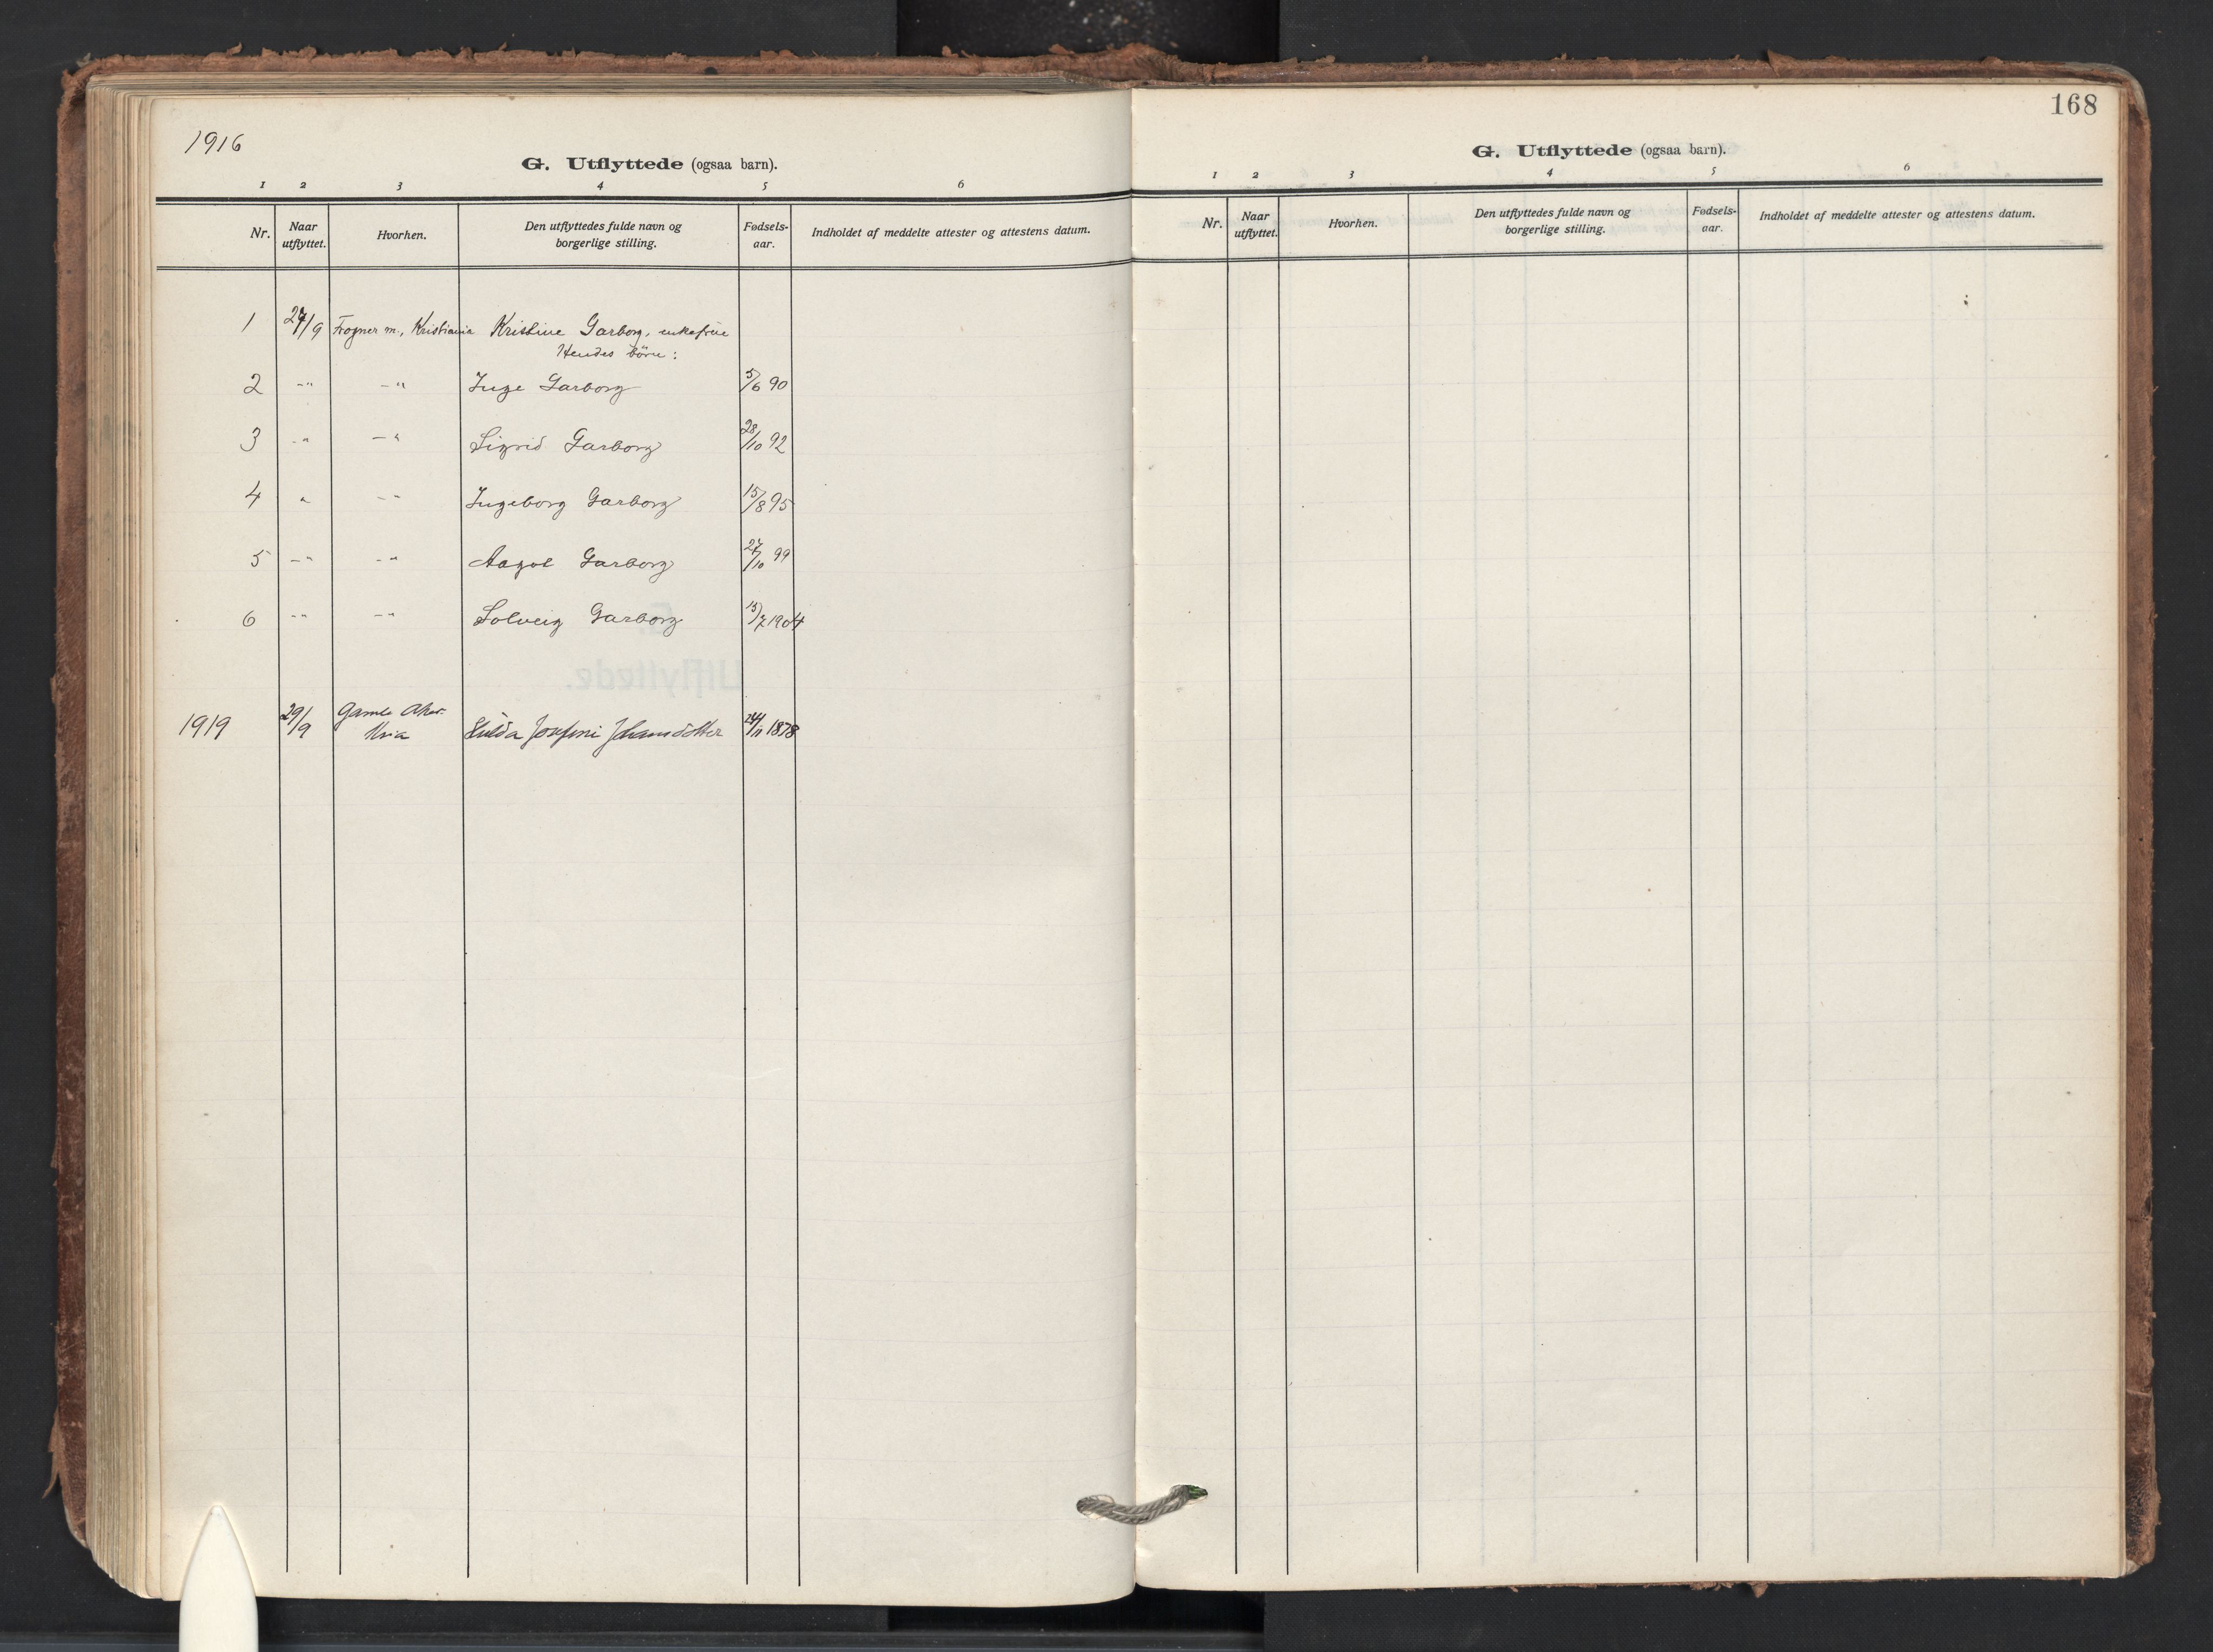 1916
G. Utflyttede (ogsaa barn).
1 2 3 4 5 6
Nr. Naar utflyttet. Hvorhen. Den utflyttedes fulde navn og borgerlige stilling. Fødsels-aar. Indholdet af meddelte attester og attestens datum.
1 27/9 Frogner m., Kristiania Kristine Garborg, enkefrue
Hendes børn:
2 -"- -"- Inge Garborg 5/6 90
3 -"- -"- Sigrid Garborg 28/10 92
4 " -"- Ingeborg Garborg 15/8 95
5 -"- -"- Aagot Garborg 27/10 99
6 -"- -"- Solveig Garborg 13/7 1904
1919 29/9 Gamle Aker
Kria Josefine 24/11 1878
168
G. Utflyttede (ogsaa barn).
1 2 3 4 5 6
Nr. Naar utflyttet. Hvorhen. Den utflyttedes fulde navn og borgerlige stilling. Fødsels-aar. Indholdet af meddelte attester og attestens datum.
Utflyttede.